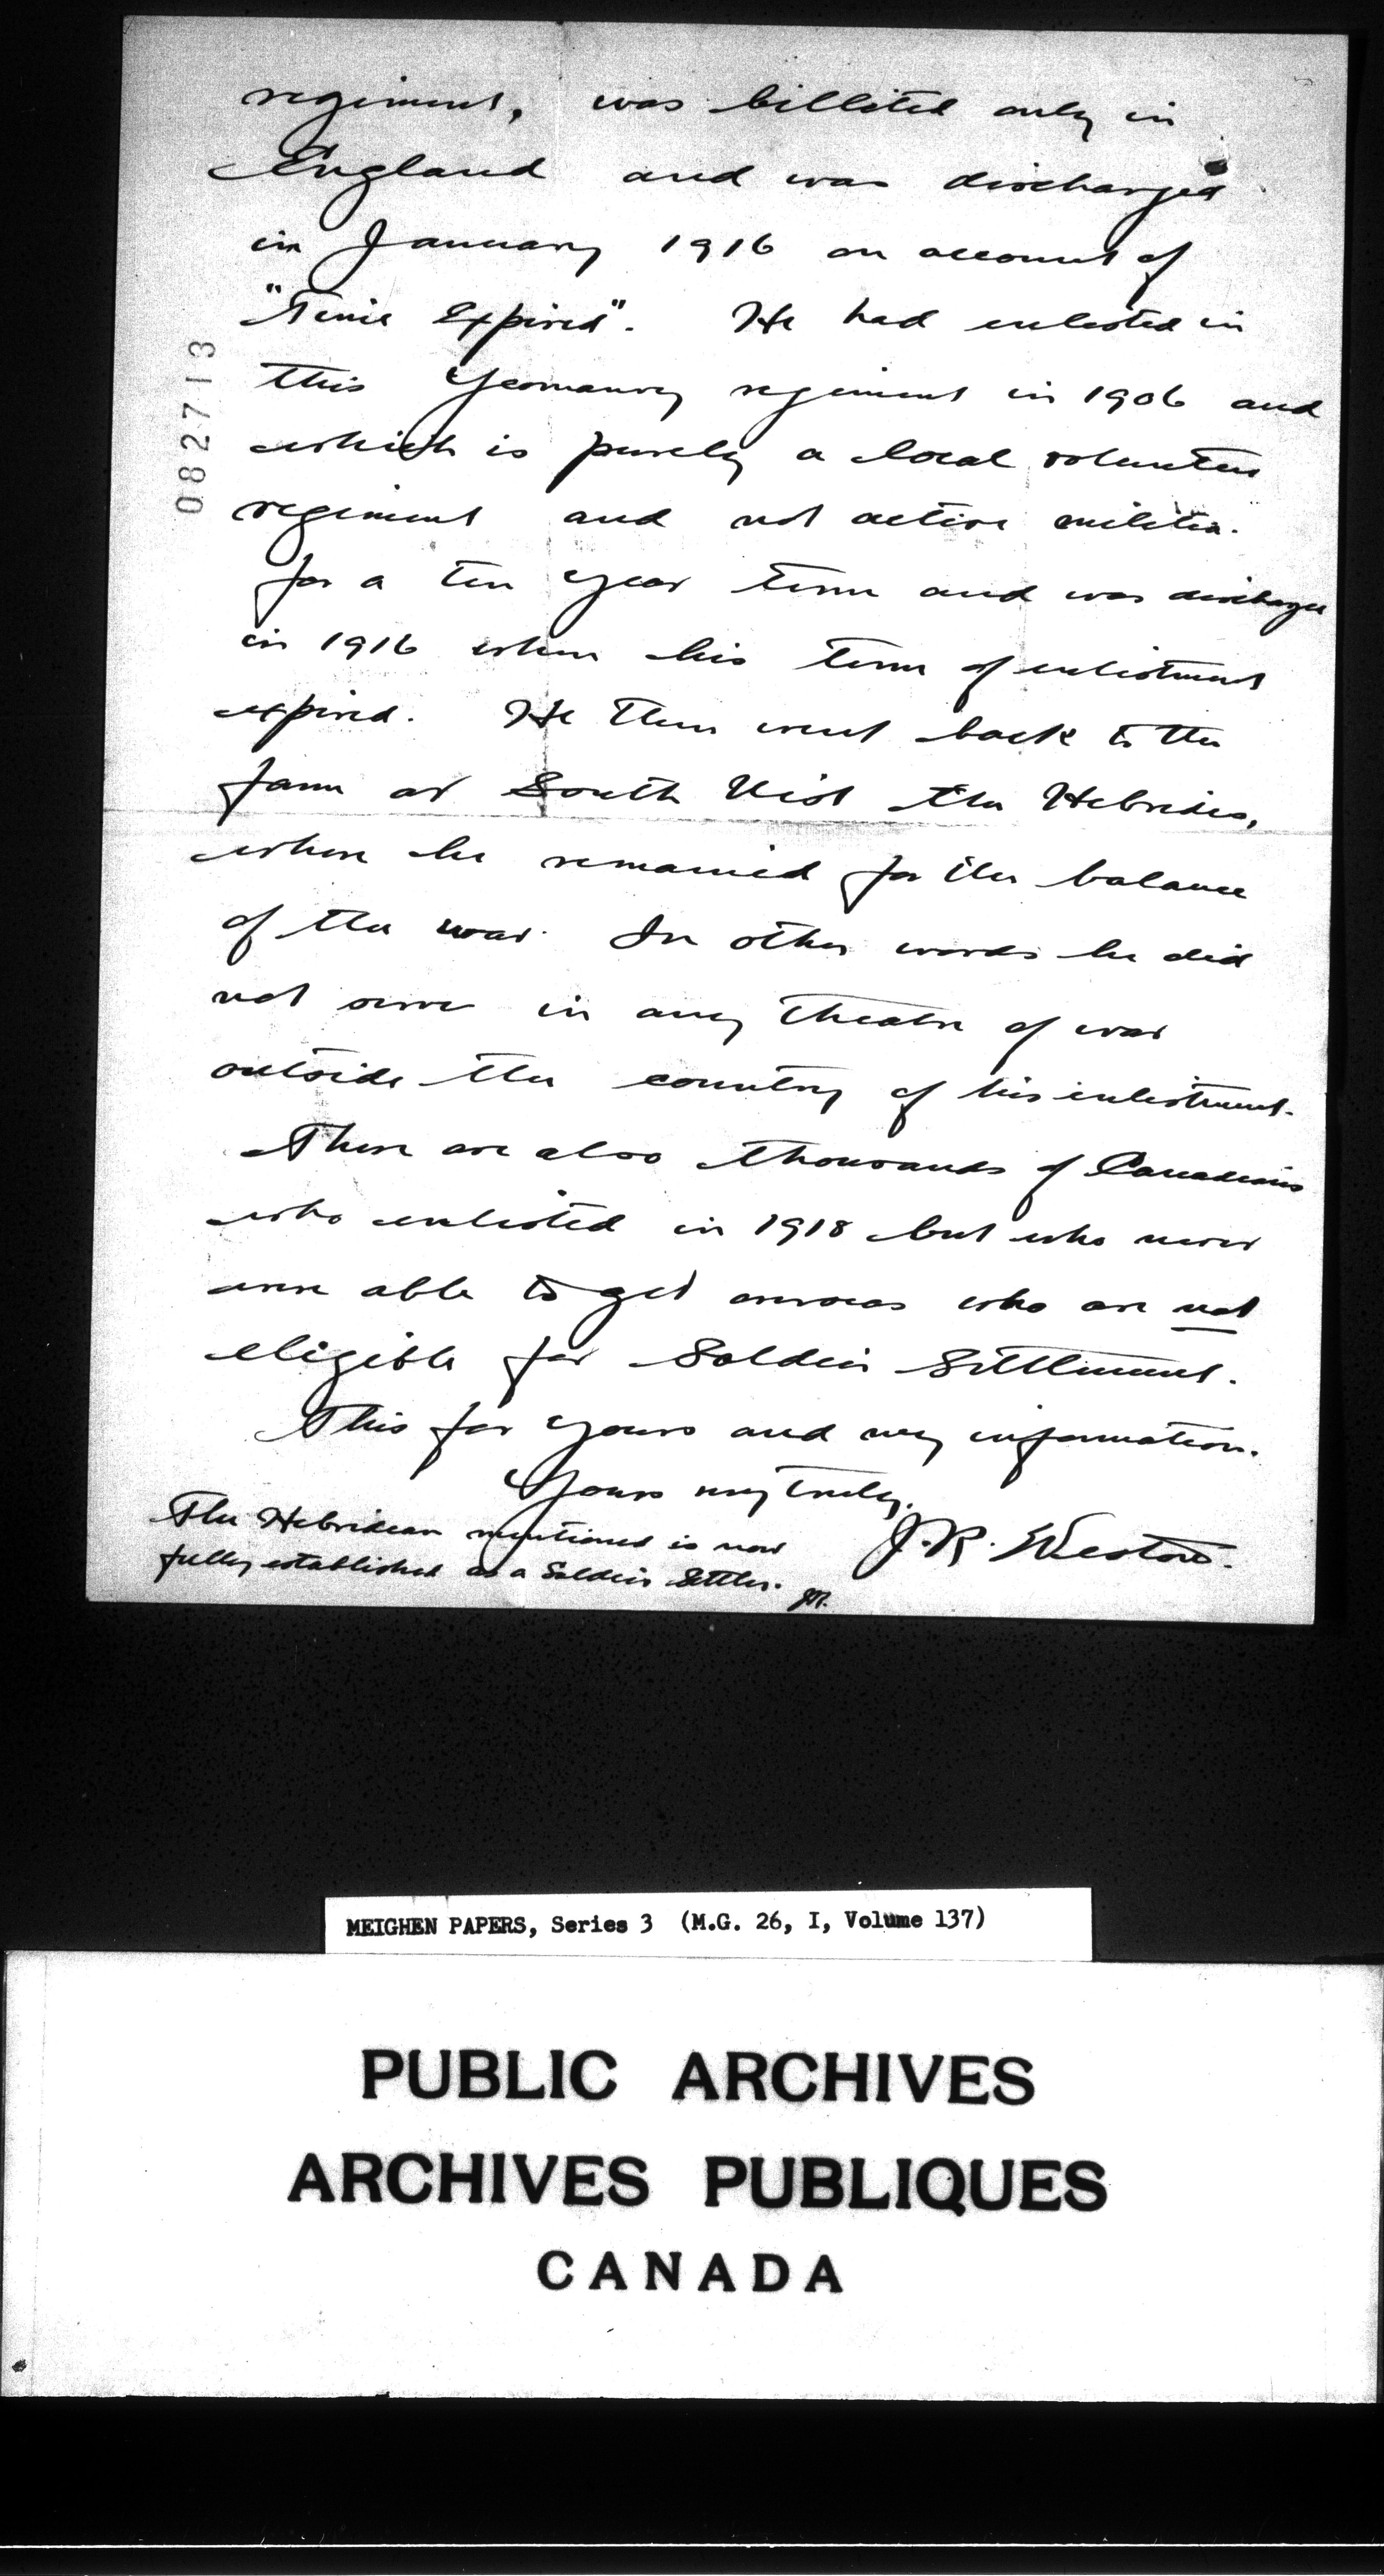 regiment, was billited only in
England and was discharged
in January 1916 on account of
"Time Expired". He had enlisted in
this Yeomanry regiment in 1906 and
which is purely a local volunteer
regiment and not active militia.
for a ten year term and was discharged
in 1916 when his term of enlistment
expired. He then went back to the
farm at South Uist the Hebrides,
where he remained for the balance
of the war. In other words he did
not serve in any theatre of war
outside the country of his enlistment.
There are also thousands of Canadians
who enlisted in 1918 but who never
were able to get overseas who are not
eligible for Soldier Settlement.
This for yours and my information.
Yours very truly,
J. R. Weston.
The Hebridean mentioned is now
fully established as a Soldier Settler.
082713
MEIGHEN PAPERS, Series 3 (M.G. 26, I, Volume 137)
PUBLIC ARCHIVES
ARCHIVES PUBLIQUES
CANADA